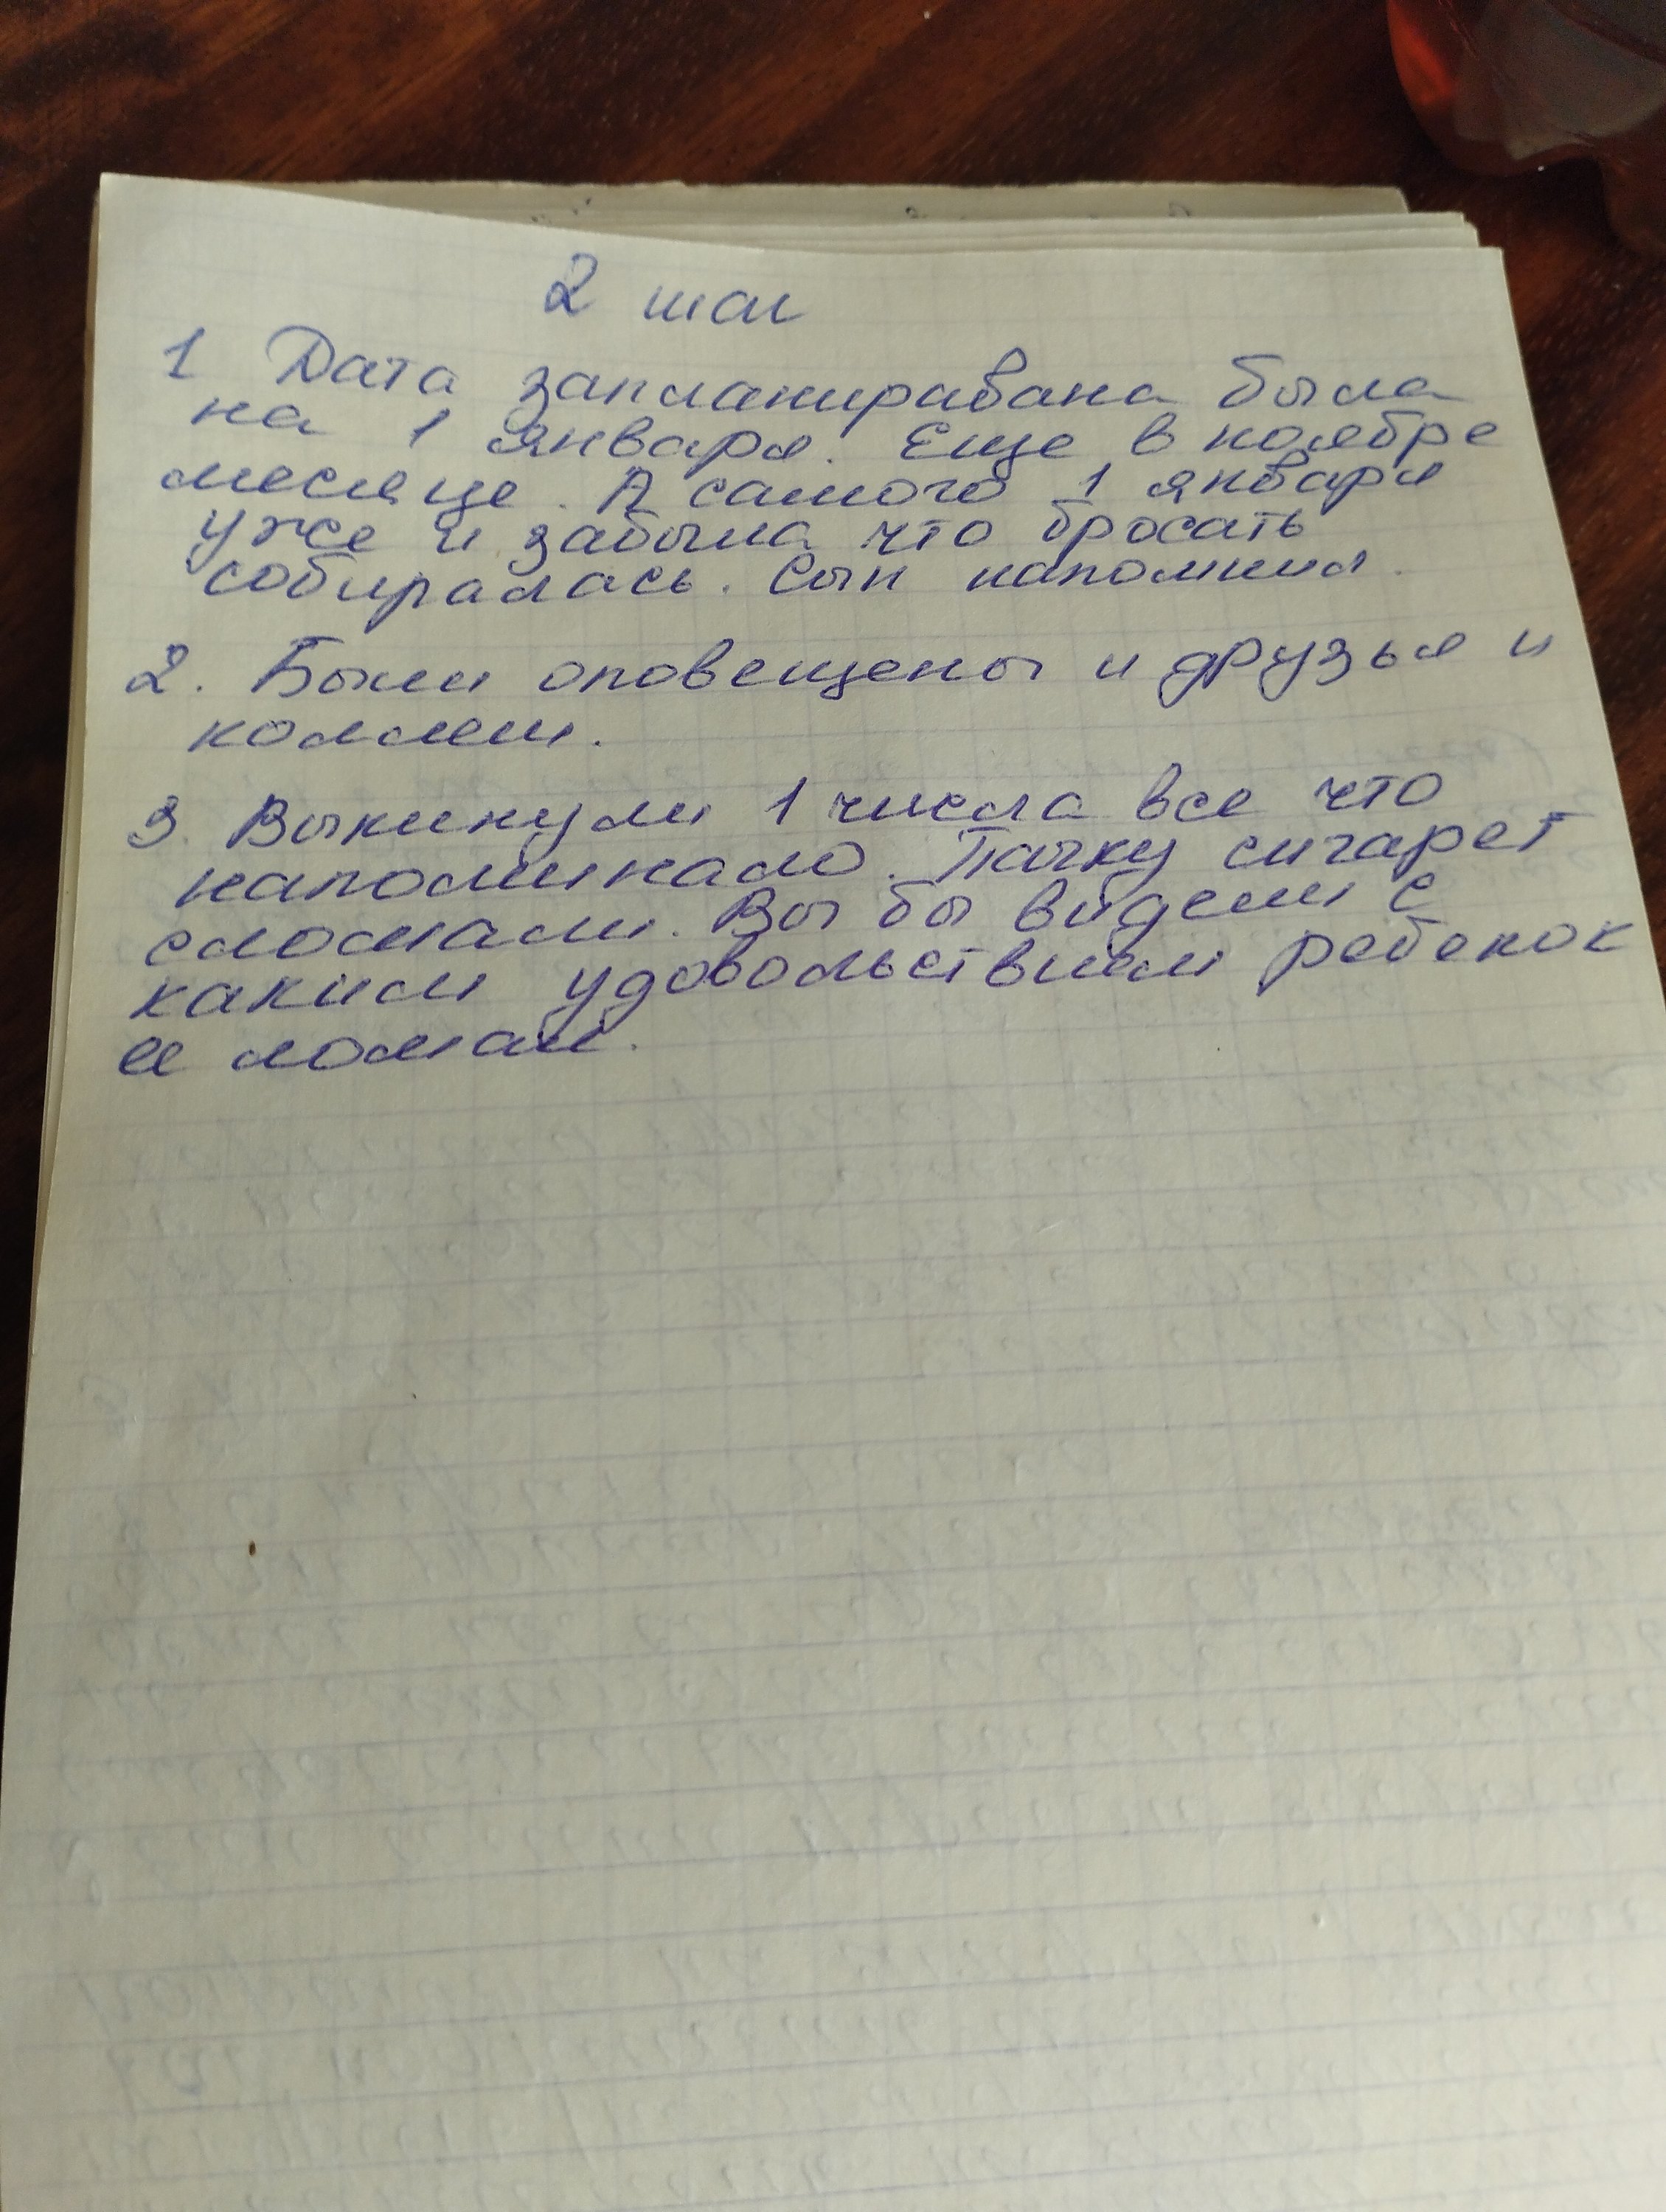 2 шаг
1 Дата запланиравана была
на 1 января. Еще в ноябре
месяце. А самого 1 января
уже и забыла что бросать
собиралась. Сын напомнил.
2. Были оповещены и друзья и
коллеги.
3. Выкинули 1 числа все что
напоминало. Пачку сигарет
сломали. Вы бы видели с
каким удовольствием ребенок
ее ломал.